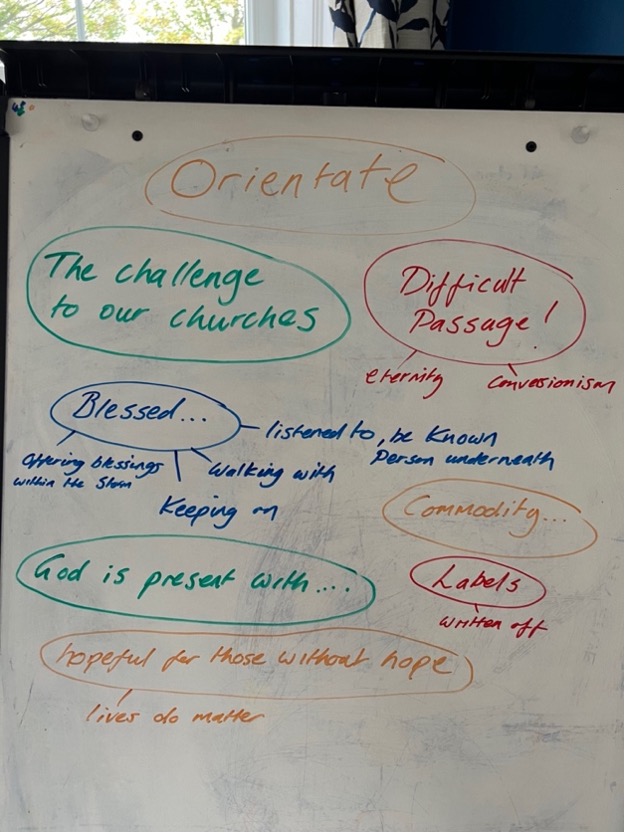 Orientate
The challenge
to our churches
Difficult
Passage!
eternity
Conversionism
Blessed...
listened to, be Known
Person underneath
Offering blessings
within the Storm
Walking with
Keeping on
Commodity...
God is present with....
Labels
written off
hopeful for those without hope
lives do matter